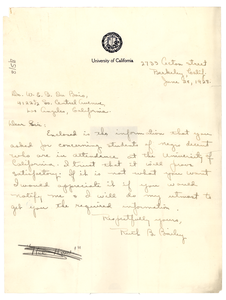 University of California
2723 Acton Street
Berkeley, Calif.
June 20, 1922
Dr. W. E. B. Du Bois,
Central Avenue,
Los Angeles, California.
Dear Sir:
Enclosed is the information that you
asked for concerning students of negro descent
who are in attendance at the University of
California. I trust that it will prove
satisfactory. If it is not what you want
I would appreciate it if you would
notify me & I will do my utmost to
get you the required information.
Respectfully yours,
Ruth B.